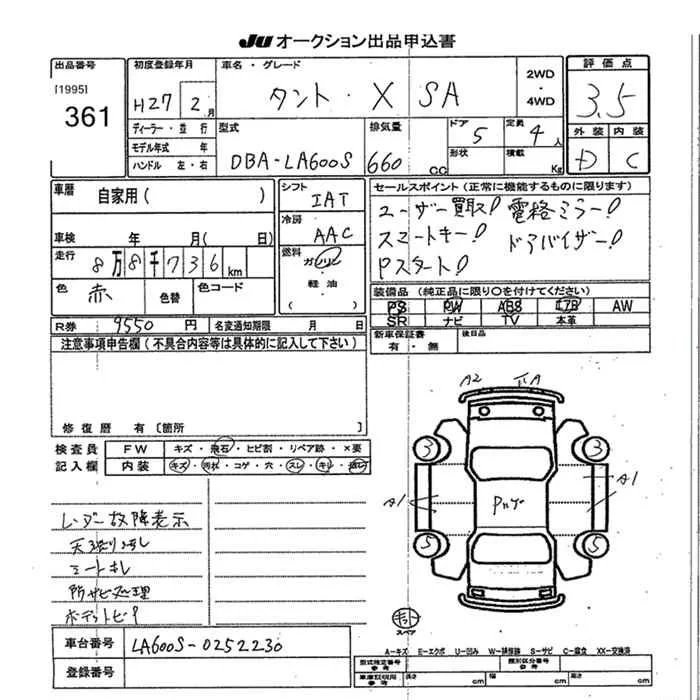 JU オークション出品申込書
出品番号 初度登録年月 車名・グレード 2WD・4WD 評価点
[1995]
361 H27 2月 タント・X SA 3.5
ディーラー・並行 型式 排気量 ドア 5 定員 4人 外装 内装
モデル年式 年 形状 積載 Kg
ハンドル 左・右 DBA-LA600S 660cc D C
車歴 自家用( ) シフト IAT セールスポイント(正常に機能するものに限ります)
ユーザー買取! 電格ミラー!
冷房 AAC スマートキー! ドアバイザー!
車検 年 月( 日) Pスタート!
走行 8万8千736km 燃料 ガソリン・軽油・( )
色 赤 色替 色コード 装備品(純正品に限り○を付けてください)
PS PW ABS エアB AW
SR ナビ TV 本革
R券 9550円 名変通知期限 月 日 新車保証書 有・無 後日品
注意事項申告欄(不具合内容等は具体的に記入して下さい)
修復歴 有〔箇所 〕
検査員 FW キズ・飛石・ヒビ割・リペア跡・×要
記入欄 内装 キズ・汚れ・コゲ・穴・スレ・キレ・
A2 A
3 3
A1 A1
5 5
レーダー故障表示
シートキレ
防サビ処理
スペア
車台番号 LA600S-0252230
登録番号
A-キズ E-エクボ U-凹み W-補修跡 S-サビ C-腐食 XX-交換済
型式指定番号 参考 類別区分番号 参考
参考 長さ cm 幅 cm 高さ cm